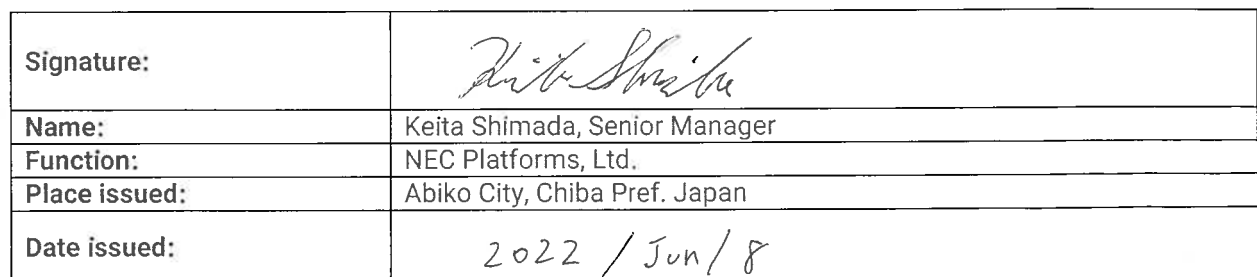 Signature:
Name: Keita Shimada, Senior Manager
Function: NEC Platforms, Ltd.
Place issued: Abiko City, Chiba Pref. Japan
Date issued: 2022 / Jun / 8